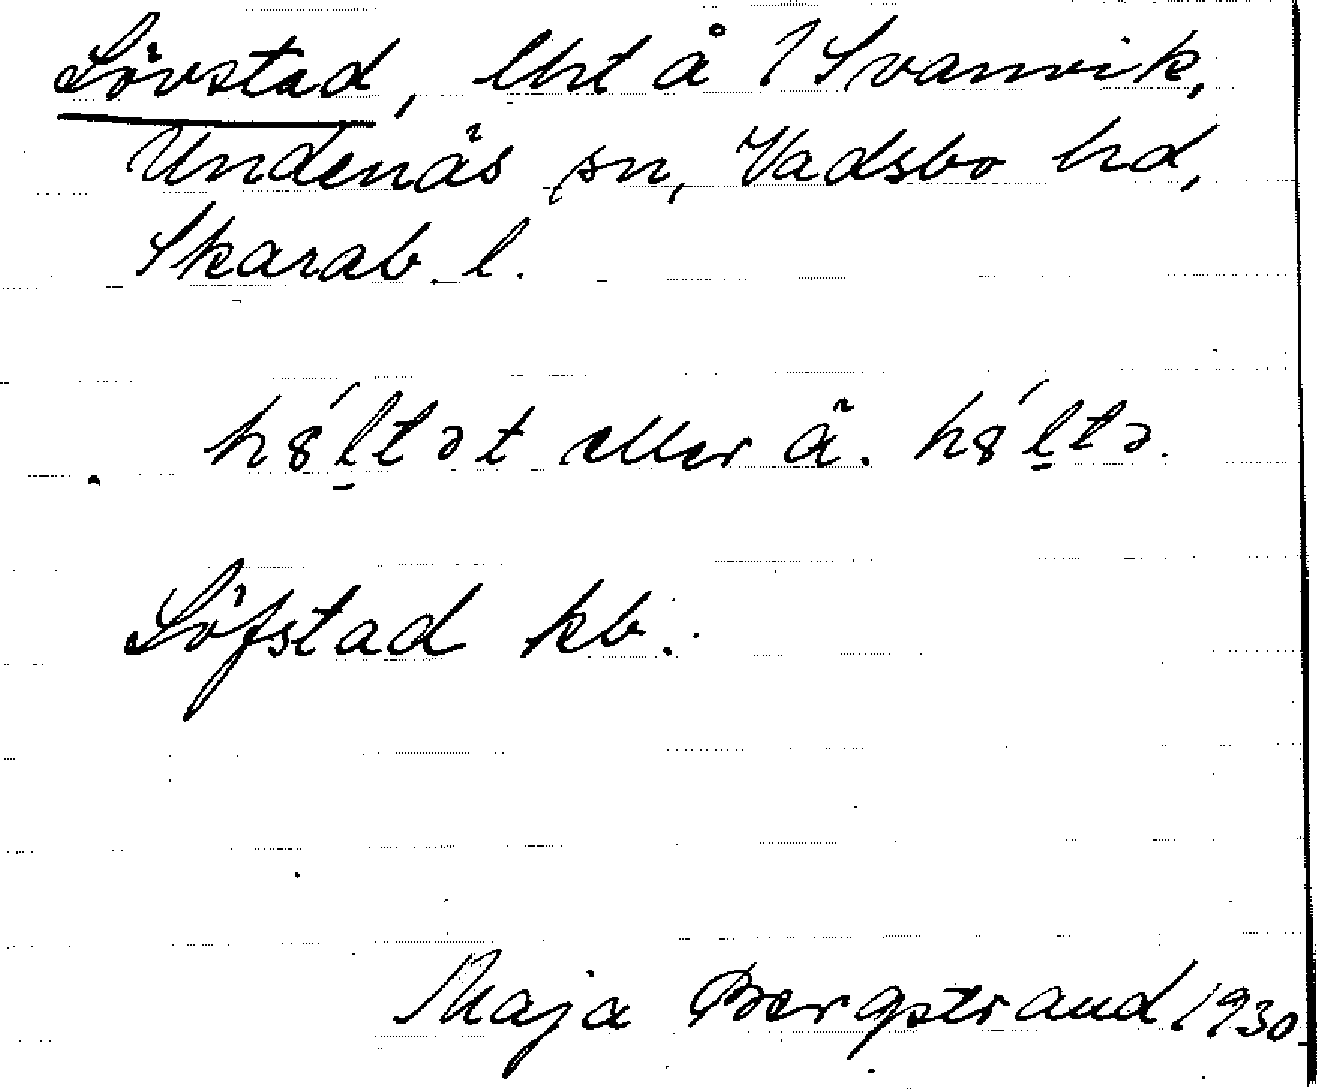 Lövstad, lht å 1 Svanvik,
Undenäs sn, Vadsbo hd,
Skarab. l.
hȣ́l̠tət eller ä. hȣ́l̠tə.
Löfstad kb.
Maja Bergstrand 1930